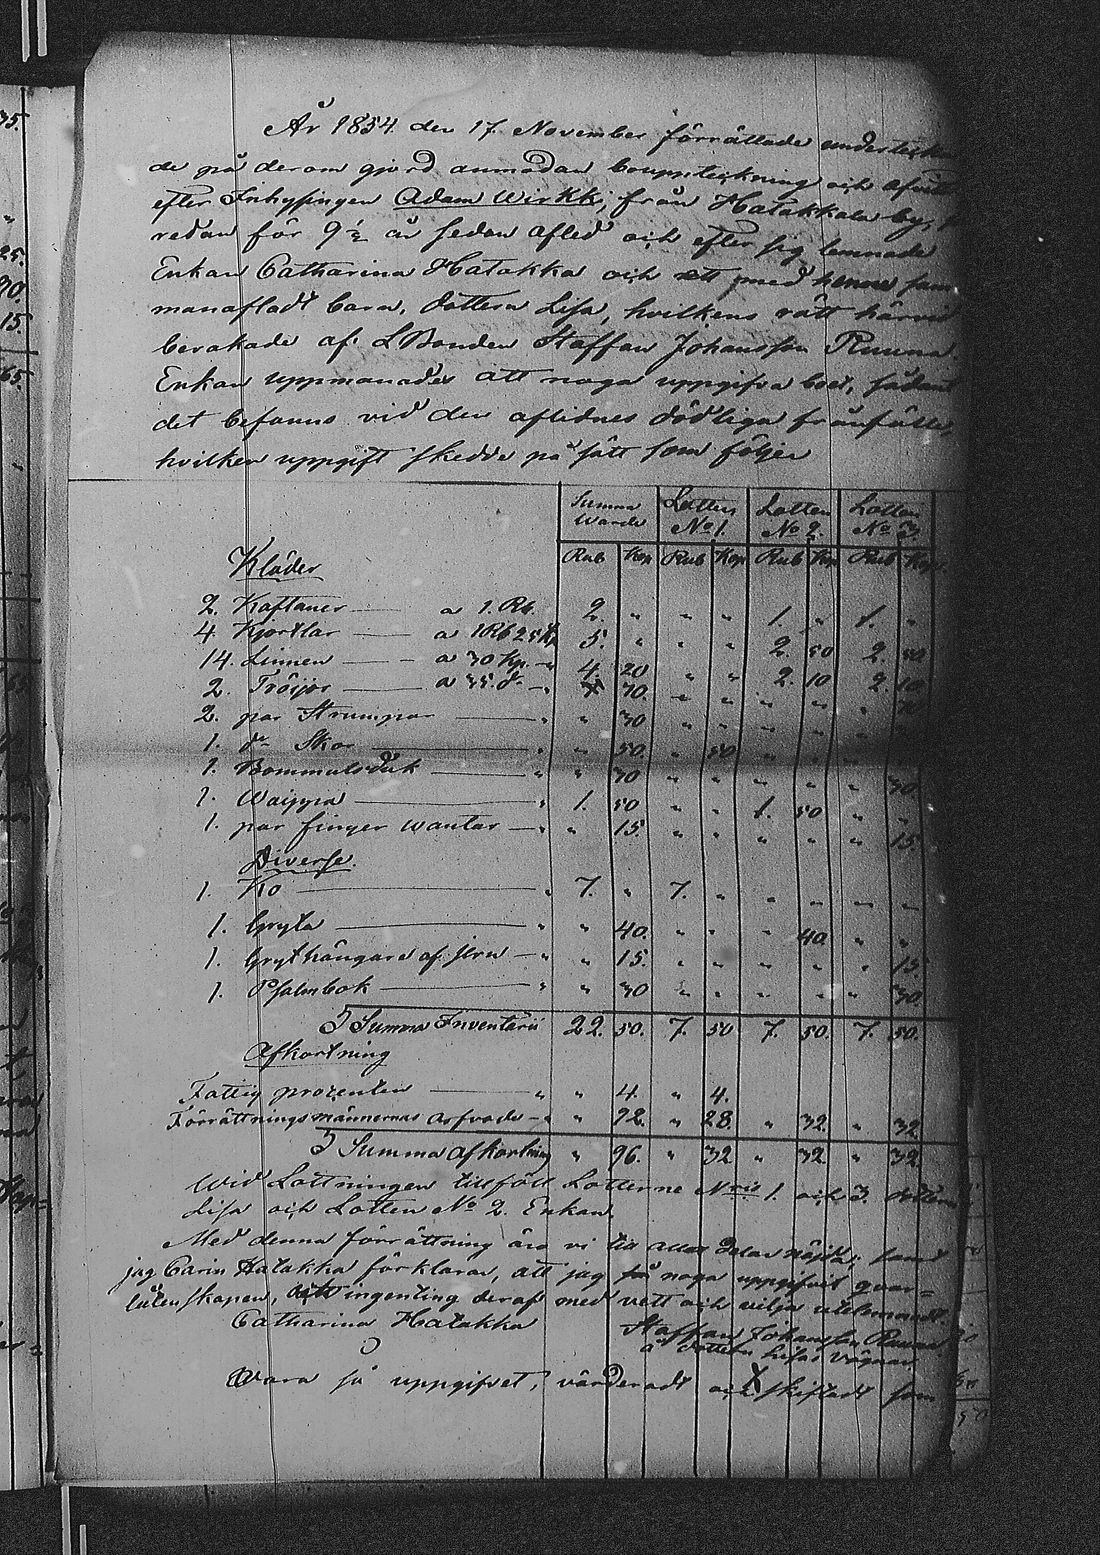 År 1854 den 17. November förrättade underteckna
de på derom gjord anmodan bouppteckning och afvitt
efter Inhysingen Adam Wirkki, från Hatakkala by,
redan för 9½ år sedan afled och efter sig lemnade
Enkan Catharina Hatakka och ett med henne sam
manafladt barn, dottern Lisa, hvilkens rätt härvid
bevakade af LBonden Staffan Johansson Ruuna.
Enkan uppmanades att noga uppgifva boet, sådant
det befanns vid den aflidnes dödliga frånfälle,
hvilken uppgift skedde på sätt som följer
Summa Lotten Lotten Lotten
Wärde No 1. No 2. No 3.
Rub Kop Rub Kop Rub Kop Rub Kop
Kläder
2. Kaftaner a 1. Rb. 2. " " " 1. " 1. "
4. Kjortlar a 1Rb 25 Kp 5. " " " 2. 50 2. 50
14. Linnen a 30 Kp. " 4. 20 " " 2. 10 2. 10
2. Tröijor a 35. d. " " 70. " " " " " 70
2. par Strumpor " " 30 " " " " " "
1. do Skor " " 50. " 50 " " " "
1. Bommulsduk " " 30 " " " " " 30
1. Waippa " 1. 50 " " 1. 50 " "
1. par finger wantar " " 15. " " " " " 15.
Diverse.
1. Ko " 7. " 7. " " " " "
1. Gryta " " 40. " " " 40. " "
1. Grythängare af jern " " 15. " " " " " 15
1. Psalmbok " " 30 " " " " " 30.
S Summa Inventarii 22. 50. 7. 50 7. 50. 7. 50.
Afkortning
Fattig procenten " " 4. " 4.
Förrättningsmännernas arfvode " " 92. " 28. " 32. " 32
S Summa afkortning " 96. " 32 " 32 " 32
Wid Lottningen tillföll Lotterne Nris 1. och 3. dottern
Lisa och Lotten No 2. Enkan.
Med denna förrättning äro vi till alla delar nöjda; samt
jag Carin Hatakka förklarar, att jag så noga uppgifvit qvar=
låtenskapen, att ingenting deraf med vett och vilja utelemnadt.
Catharina Hatakka Staffan Johansson Ruuna
å dottern Lisas vägnar
Wara så uppgifvet, värderadt och skiftadt som